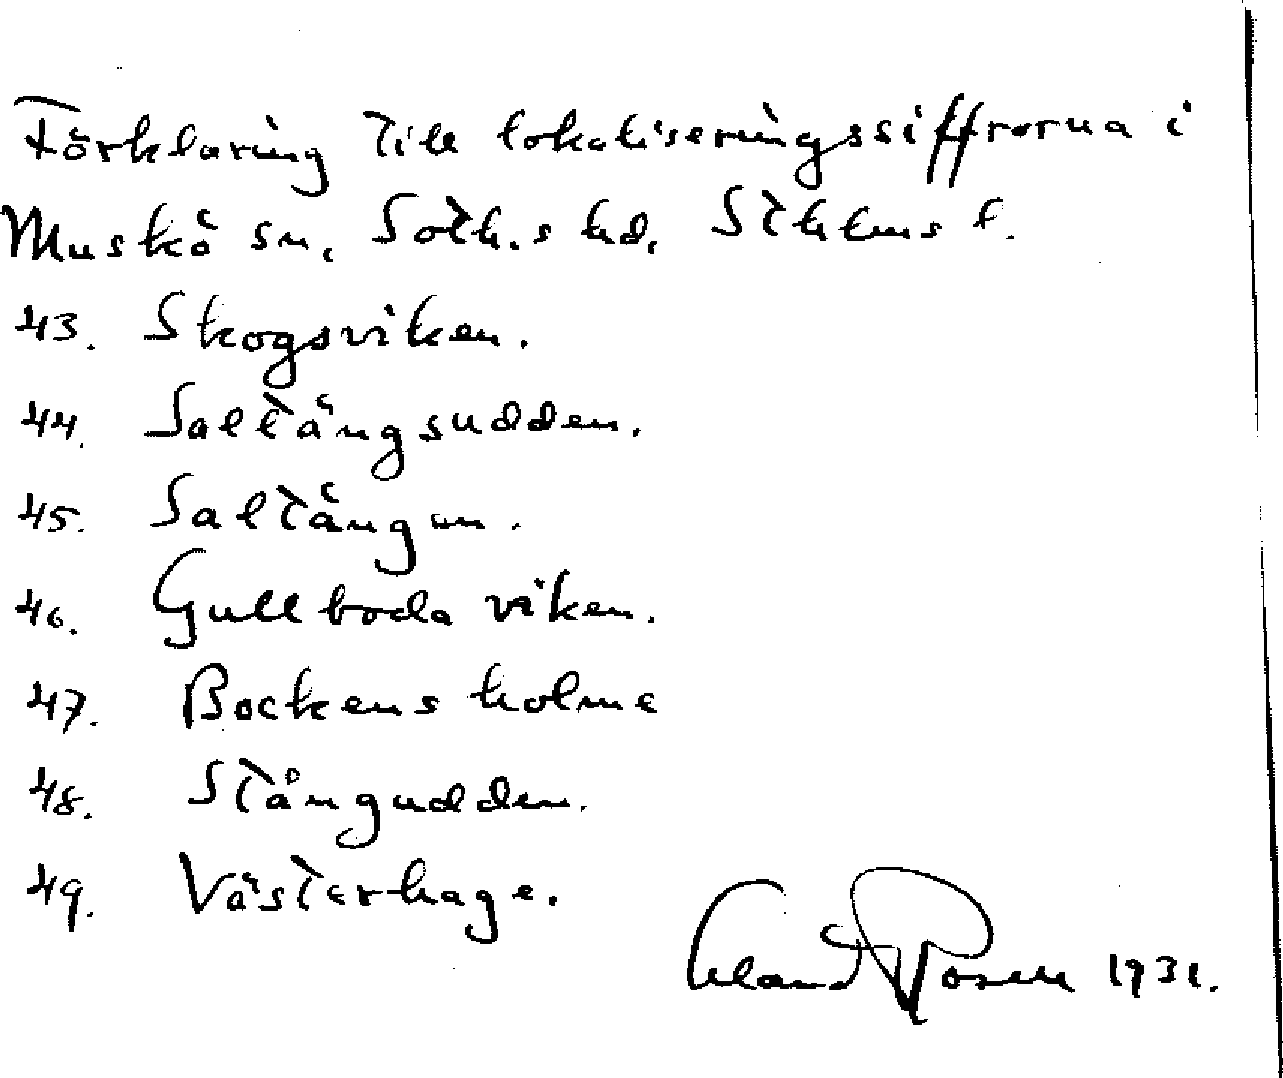 Förklaring till lokaliseringssiffrorna i
Muskö sn, Soth.s hd, Sthlms l.
43. Skogsviken.
44. Saltängsudden.
45. Saltängen.
46. Gullboda viken.
47. Bockens holme
48. Stångudden.
49. Västerhage.
Erland Rosell 1931.